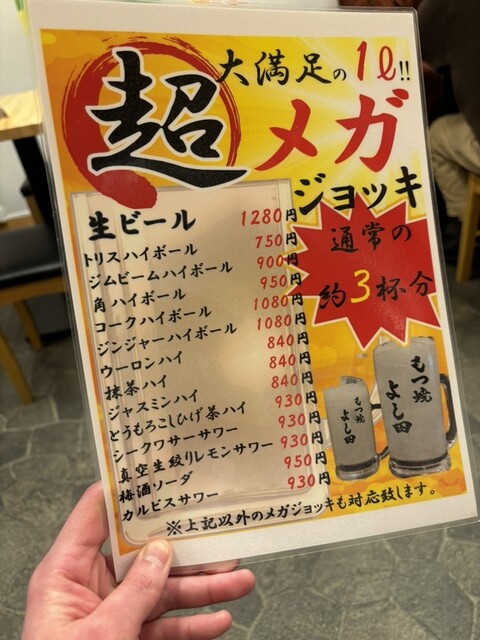 大満足の1ℓ!!
超メガ
ジョッキ
生ビール 1280円
トリスハイボール 750円
ジムビームハイボール 900円
角ハイボール 950円
コークハイボール 1080円
ジンジャーハイボール 1080円
ウーロンハイ 840円
抹茶ハイ 840円
ジャスミンハイ 840円
とうもろこしひげ茶ハイ 930円
シークワーサーサワー 930円
真空生絞りレモンサワー 930円
梅酒ソーダ 950円
カルピスサワー 930円
通常の
約3杯分
もつ焼
よし田
もつ焼
よし田
※上記以外のメガジョッキも対応致します。